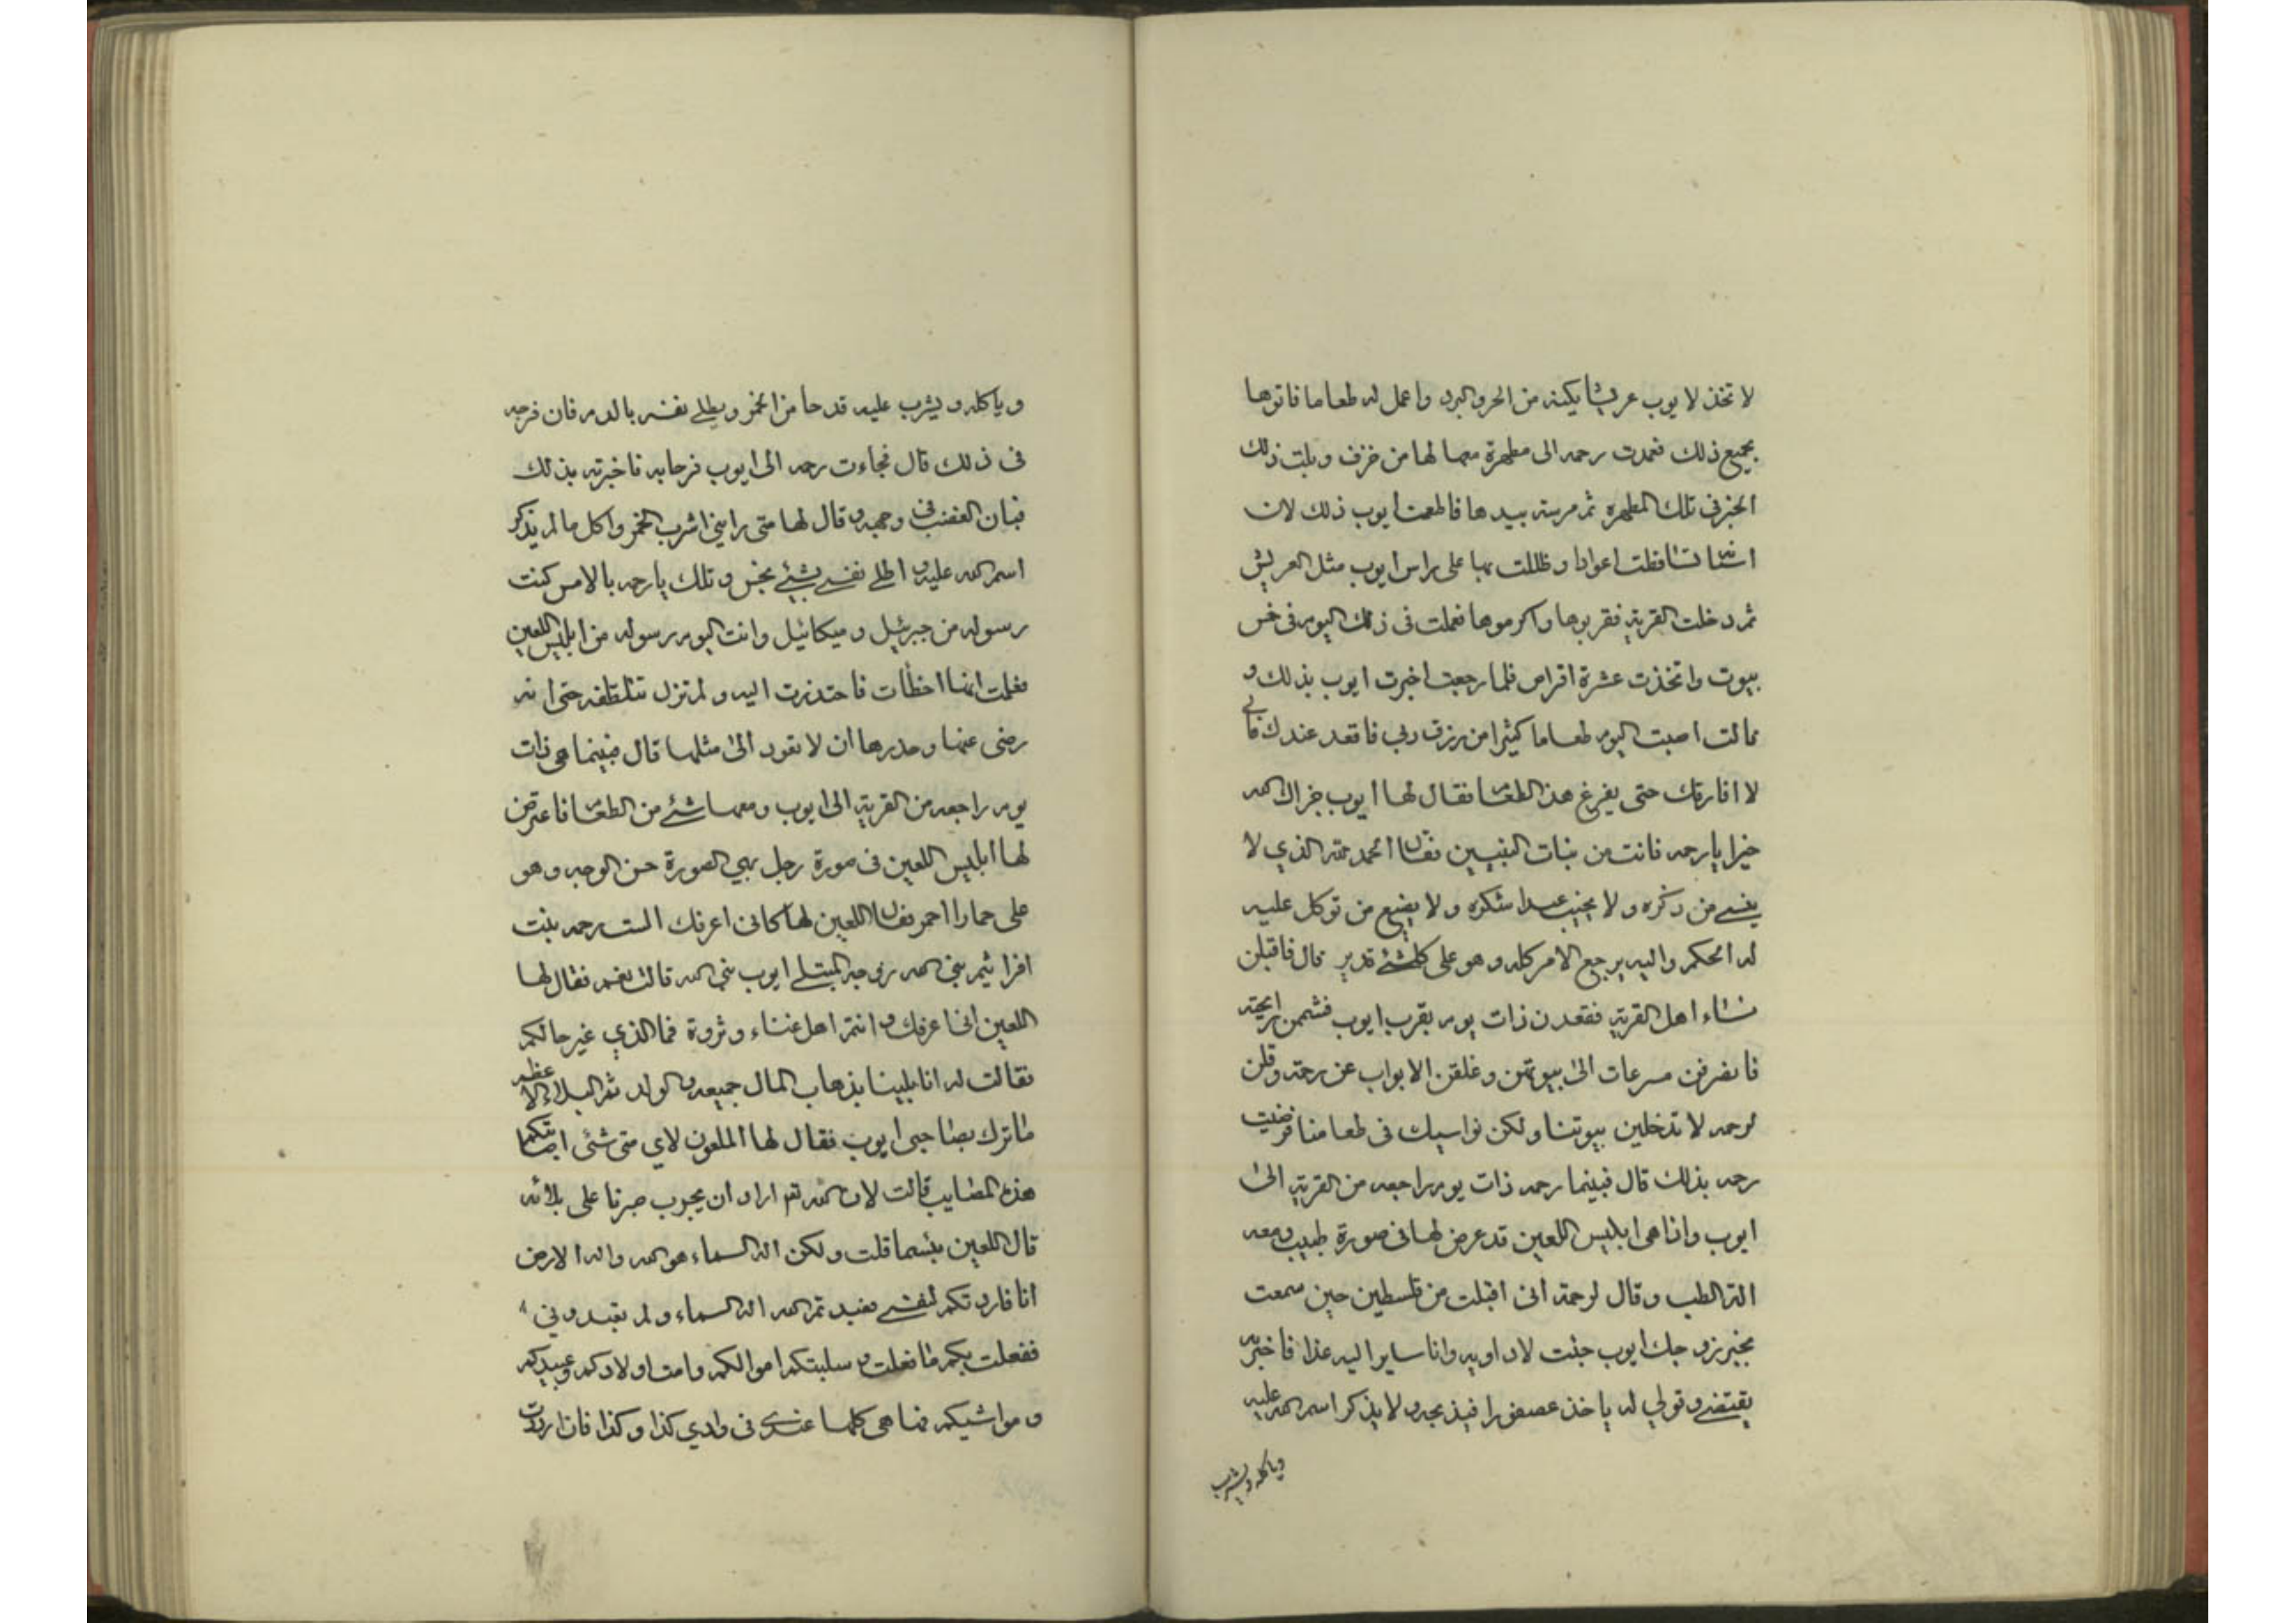 لاتخذ لايوب عريشا يكنه من الحر والبرد واعمل له طعاما فاتوها
بجميع ذلك فعمدت رحمه الى مطهرة معها لها من خزف وبلت ذلك
الخبز فى تلك المطهره ثم مرسته بيدها فاطعمت ايوب ذلك لان
اسنانه تساقطت اعوادا وظللت بها على راس ايوب مثل العريش
ثم دخلت القرية فقربوها واكرموها فعملت فى ذلك اليوم فى خمس
بيوت واتخذت عشرة اقراص فلما رجعت اخبرت ايوب بذلك و
قالت اصبت اليوم طعاما كثيرا من رزق ربي فاقعد عندك فاني
لا افارقك حتى يفرغ هذ الطعام فقال لها ايوب جزاك الله
خيرا يارحمه فانت من بنات النبيين فقال الحمد لله الذي لا
ينسى من ذكره ولا يخيب عبدا شكره ولا يضيع من توكل عليه
له الحكم واليه يرجع الامر كله وهو على كل شئ قدير قال فاقبلن
نساء اهل القرية فقعدن ذات يوم بقرب ايوب فشممن رايحته
فانصرفن مسرعات الى بيوتهن وغلقن الابواب عن رحمة وقلن
لرحمه لا تدخلين بيوتنا ولكن نواسيك فى طعامنا فرضيت
رحمه بذلك قال فبينما رحمه ذات يوم راجعه من القرية الى
ايوب واذا هى ابليس اللعين قد عرض لها فى صورة طبيب ومعه
الة الطب وقال لرحمة انى اقبلت من فلسطين حين سمعت
بخبر زوجك ايوب جئت لاداويه وانا سايرا اليه غدا فاخبريه
بقصتى وقولي له ياخذ عصفورا فيذبحه ولا يذكر اسم الله عليه
وياكله ويشرب
وياكله ويشرب عليه قدحا من الخمر ويطلى نفسه بالدم فان فرجه
فى ذلك قال فجاءت رحمه الى ايوب فرحا به فاخبرته بذلك
فبان الغضب فى وجهه وقال لها متى رايتنى اشرب الخمر واكل ما لم يذكر
اسم الله عليه و اطلى نفسى بشئ نجس وتلك يارحمه بالامس كنت
رسوله من جبرئيل وميكائيل وانت اليوم رسوله من ابليس اللعين
فعلمت انها اخطأت فاعتذرت اليه ولم تزل تتلطفه حتى انه
رضى عنها وحذرها ان لا تعود الى مثلها قال فبينما هى ذات
يوم راجعه من القرية الى ايوب ومعها شئ من الطعام فاعترض
لها ابليس اللعين فى صورة رجل بهي الصورة حسن الوجه وهو
على حمارا احمر فقال اللعين لها كانى اعرفك الست رحمه بنت
افراثيم بني الله زوجه المبتلى ايوب نبى الله قالت نعم فقال لها
اللعين انى اعرفك وانتم اهل غناء وثروة فما الذي غير حالكم
فقالت له انا بلينا بذهاب المال جميعه والولد ثم البلاء الاعظم
ما نزل بصاحبى ايوب فقال لها الملعون لاي متى شئ اصابتكما
هذه المصايب قالت لان الله تع اراد ان يجرب صبرنا على بلائه
قال اللعين بئسما قلت ولكن اله السماء هو الله واله الارض
انا فاردتكم لنفسى فعبدتم الله اله السماء ولم تعبدوني
ففعلت بكم ما فعلت و سلبتكم اموالكم وامت اولادكم وعبيدكم
ومواشيكم فها هى كلها عندى فى وادي كذا وكذا فان اردت